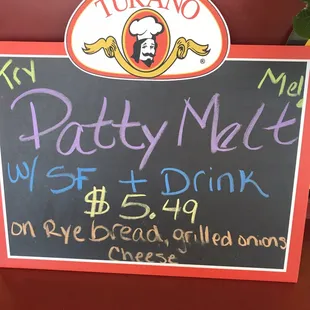 TURANO
®
Try Me!
Patty Melt
W/ SF + Drink
$5.49
on Rye bread, grilled onions
Cheese